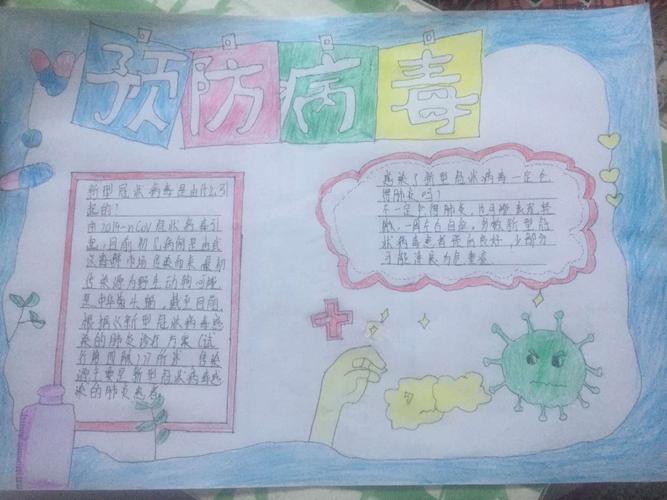 预防病毒
新型冠状病毒是由什么引
起的？
由2019-nCoV冠状病毒引
起，目前初几病例是由武
汉海鲜市场传染而来，最初
传染源为野生动物可能
是中华菊头蝠，截至目前
根据《新型冠状病毒感
染的肺炎诊疗方案（试
行第四版）》所示，传染
源主要是新型冠状病毒感
染的肺炎患者
感染了新型冠状病毒一定会
得肺炎吗？
不一定会得肺炎，
多数新型冠
状病毒患者预后良好，少部分
可能进展为危重症